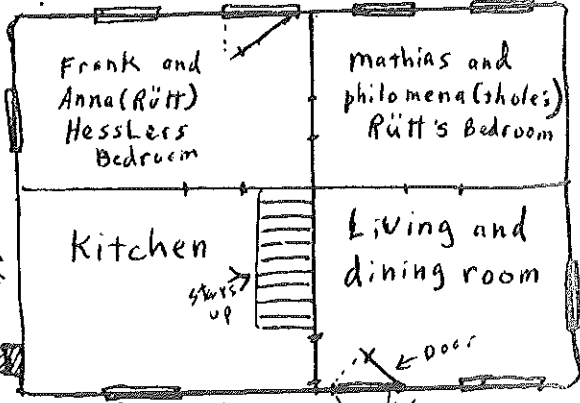 Frank and
Anna (Rütt)
Hesslers
Bedroom
mathias and
philomena (tholes)
Rütt's Bedroom
Kitchen
stairs
up
Living and
dining room
Door